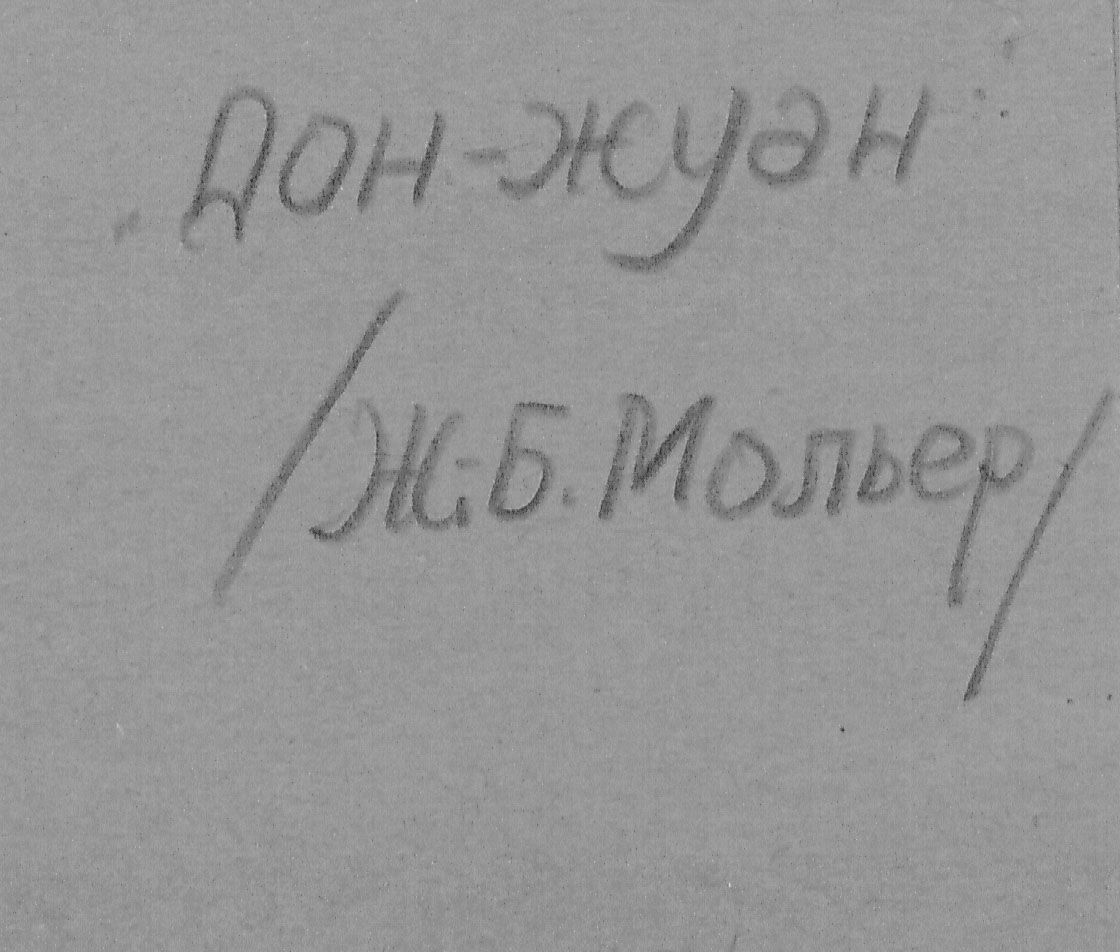 „Дон-жуан"
/Ж.-Б. Мольер/